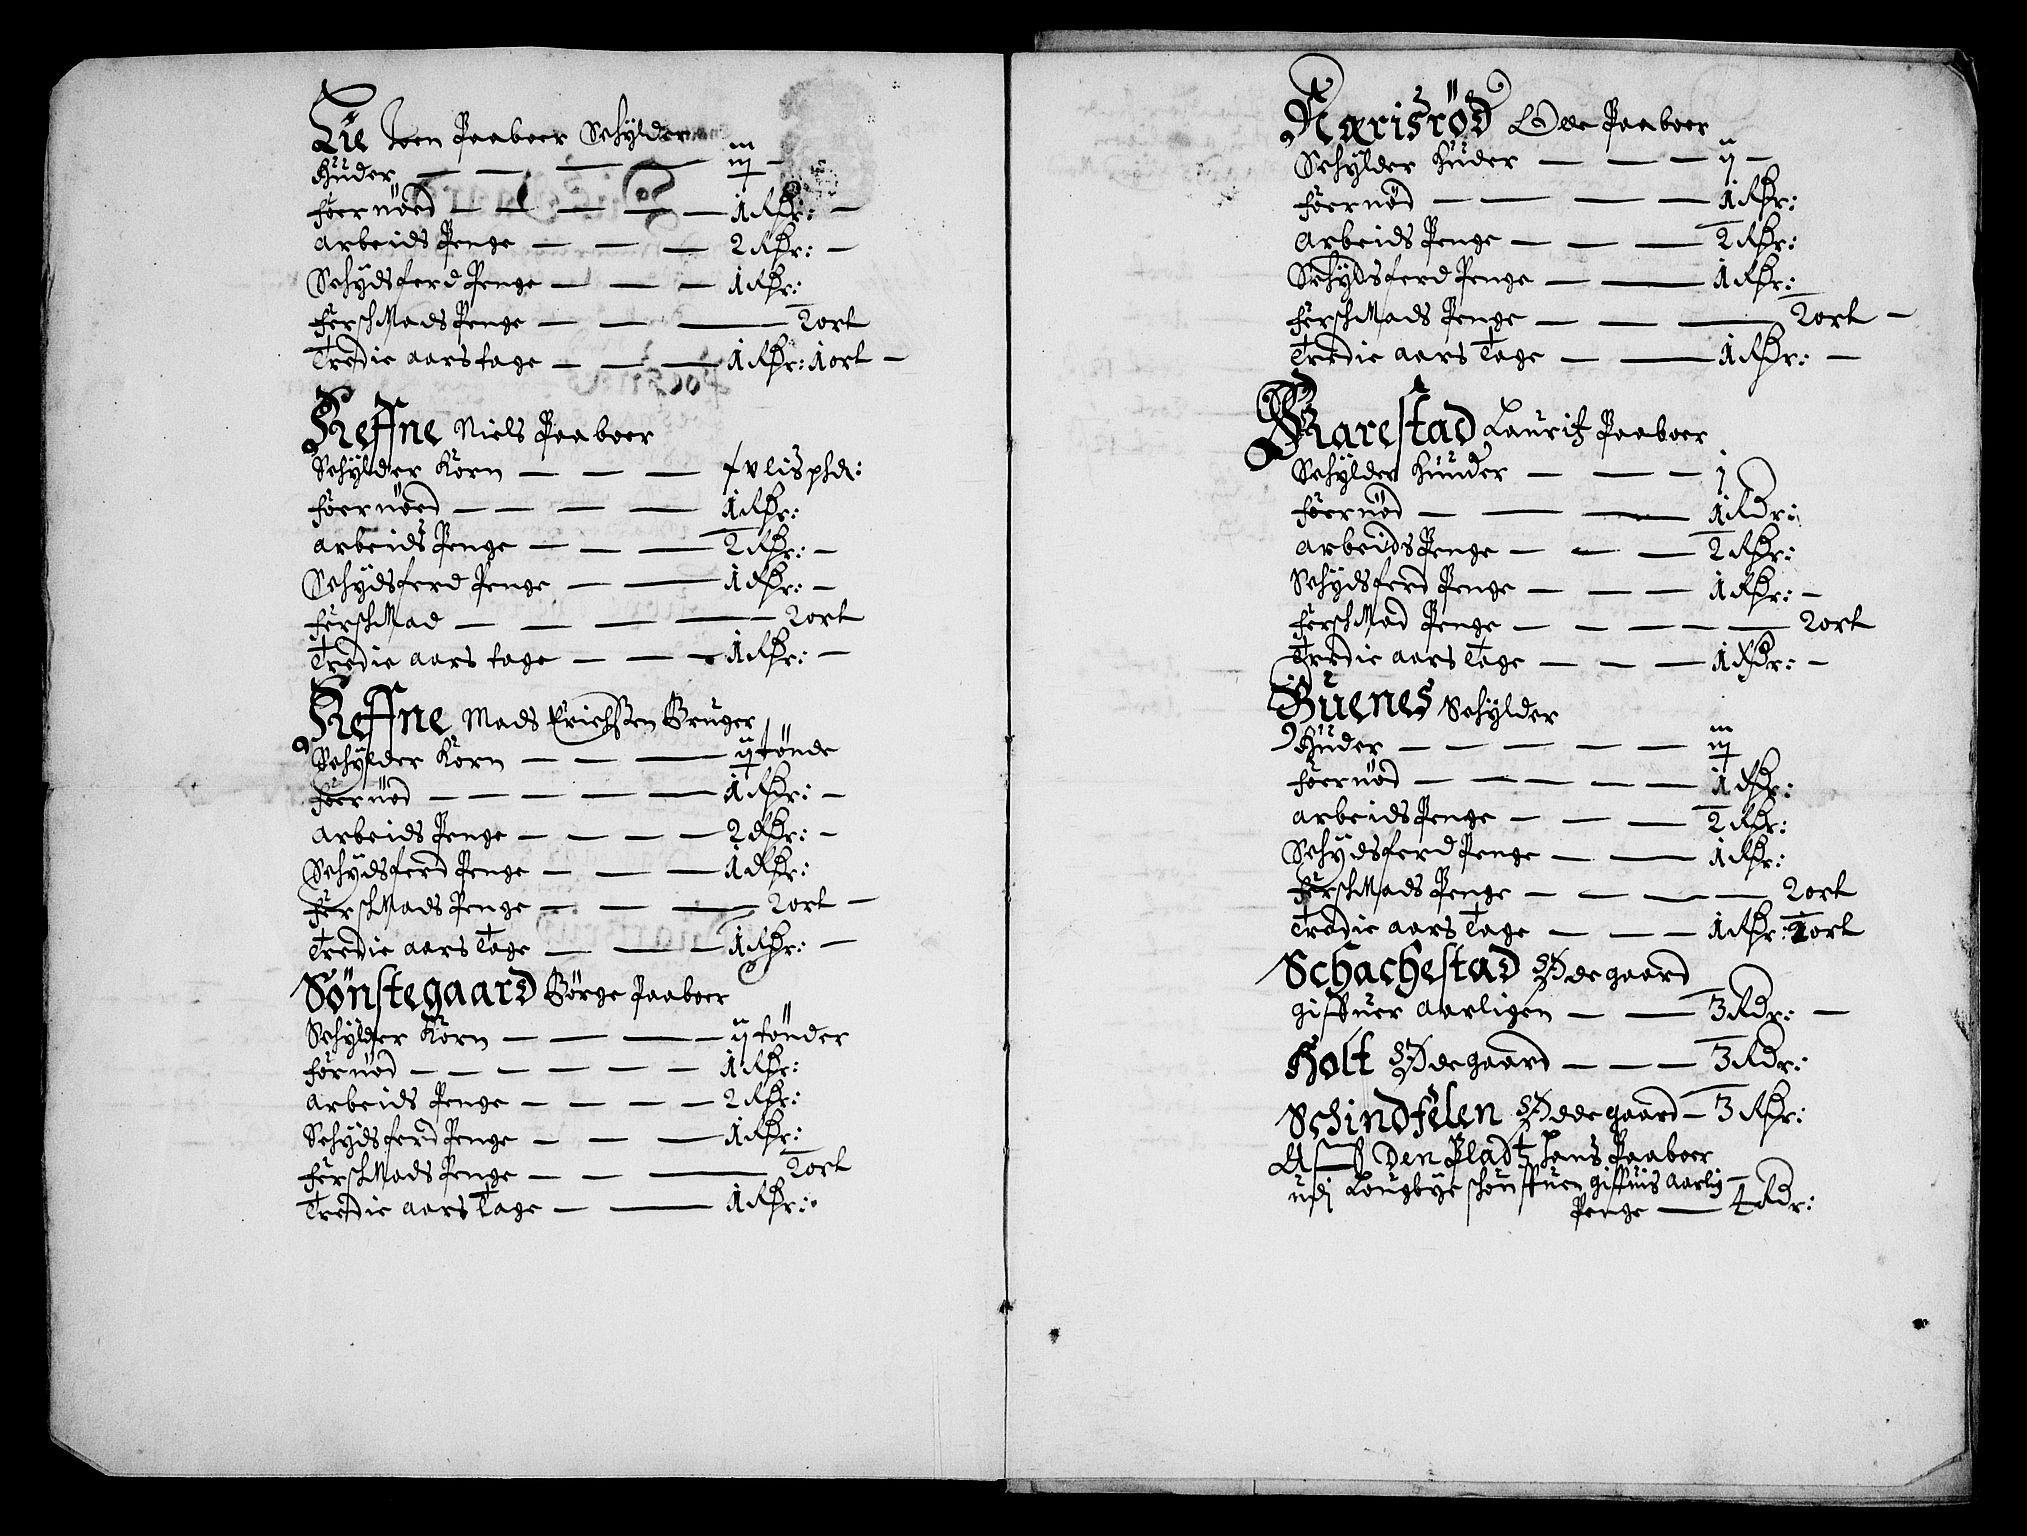 Lie Joen Paaboer Schylder
Huder — — — — iij —
foernöed — — — — 1 Rdr: —
arbeids Penge — — — 2 Rdr: —
Schydsferd Penge — — — 1 Rdr:
fersch Mads Penge — — — 2 ort
Tredie aars tage — — — 1 Rdr: 1 ort —
Reffne Niels Paaboer
Schylder Korn — — — lispd:
foernöed — — — — 1 Rdr:
arbeids Penge — — — 2 Rdr: —
Schydsferd Penge — — 1 Rdr: —
fersch Mad — — — — 2 ort
Tredie aars tage — — — 1 Rdr: —
Reffne Mads Erichßen Bruger
Schylder Korn — — — ij tönde
foernöd — — — — — 1 Rdr: —
arbeids Penge — — — — 2 Rdr: —
Schydsferd Penge — — — 1 Rdr:
fersch Mads Penge — — — 2 ort —
Tredie aars Tage — — — 1 Rdr: —
Sönstegaard Börge Paaboer
Schylder Korn — — — ij tönder
förnöd — — — — — — 1 Rdr:
arbeids Penge — — — — 2 Rdr:
Schydsferd Penge — — — 1 Rdr:
fersch Mads Penge — — — 2 ort
Tredie aars Tage — — 1 Rdr:
Narisröd Paaboer
Schylder Huder — — — ij —
foernöd — — — — 1 Rdr:
arbeids Penge — — — 2 Rdr:
Schydsferd Penge — — 1 Rdr:
fersch Mads Penge — — — 2 ort —
Tredie aars Tage — — 1 Rdr: —
Barestad Lauritz Paaboer
Schylder Hunder — — — j
foernöd — — — 1 Rdr:
arbeids Penge — — — 2 Rdr:
Schydsferd Penge — — — 1 Rdr: —
fersch Mad Penge — — — — — 2 ort
Tredie aars Tage — — — 1 Rdr: —
Buenes Schylder
Huder — — — — — iij
foernöd — — — — — 1 Rdr:
arbeids Penge — — — 2 Rdr:
Schydsferd Penge — — 1 Rdr:
fersch Mads Penge — — — — 2 ort
Tredie aars Tage — — — 1 Rdr: 1 ort
Schachestad Ødegaard
giffuer aarligen — — 3 Rdr: —
Holt Ødegaard — — — 3 Rdr:
Schindfelen Ødegaard — 3 Rdr:
Aff Den Pladz Hans Paaboer
udj Lougbye giffuis aarlig —
Penge — 4 Rdr: